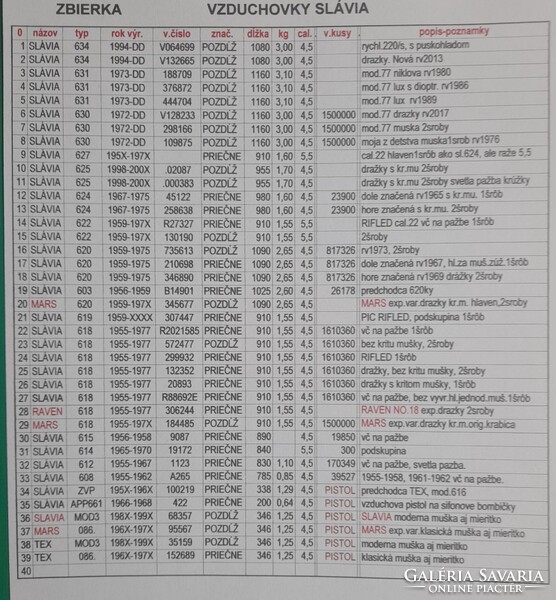 ZBIERKA VZDUCHOVKY SLÁVIA
0 názov typ rok výr. v.číslo znač. dĺžka kg cal. v.kusy popis-poznamky
1 SLÁVIA 634 1994-DD V064699 POZDĹŽ 1080 3,00 4,5 rychl.220/s, s puskohladom
2 SLÁVIA 634 1994-DD V132665 POZDĹŽ 1080 3,00 4,5 drazky. Nová rv2013
3 SLÁVIA 631 1973-DD 188709 POZDĹŽ 1160 3,10 4,5 mod.77 niklova rv1980
4 SLÁVIA 631 1973-DD 376872 POZDĹŽ 1160 3,10 4,5 mod.77 lux s dioptr. rv1986
5 SLÁVIA 631 1973-DD 444704 POZDĹŽ 1160 3,10 4,5 mod.77 lux rv1989
6 SLÁVIA 630 1972-DD V128233 POZDĹŽ 1160 3,00 4,5 1500000 mod.77 drazky rv2017
7 SLÁVIA 630 1972-DD 298166 POZDĹŽ 1160 3,00 4,5 1500000 mod.77 muska 2sroby
8 SLÁVIA 630 1972-DD 109875 POZDĹŽ 1160 3,00 4,5 1500000 moja z detstva muska1srob rv1976
9 SLÁVIA 627 195X-197X PRIEČNE 910 1,60 5,5 cal.22 hlaven1srôb ako sl.624, ale raže 5,5
10 SLÁVIA 625 1998-200X .02087 POZDĹŽ 955 1,70 4,5 dražky s kr.mu 2šroby
11 SLÁVIA 625 1998-200X .000383 POZDĹŽ 955 1,70 4,5 dražky s kr.mu 2šroby svetla pažba krúžky
12 SLÁVIA 624 1967-1975 45122 PRIEČNE 980 1,60 4,5 23900 dole značená rv1965 s kr.mu. 1šrôb
13 SLÁVIA 624 1967-1975 258638 PRIEČNE 980 1,60 4,5 23900 hore značená s kr.mu. 2šroby
14 SLÁVIA 622 1959-197X R27327 PRIEČNE 910 1,55 5,5 RIFLED cal.22 vč na pažbe 1šrôb
15 SLÁVIA 622 1959-197X 130190 POZDĹŽ 910 1,55 5,5 2šroby
16 SLÁVIA 620 1959-975 735613 POZDĹŽ 1090 2,65 4,5 817326 rv1973, 2šroby
17 SLÁVIA 620 1959-975 210698 PRIEČNE 1090 2,65 4,5 817326 dole značená rv1967, hl.za muš.zúž.1šrôb
18 SLÁVIA 620 1959-975 346890 PRIEČNE 1090 2,65 4,5 817326 hore značená rv1969 drážky 2šroby
19 SLÁVIA 603 1956-1959 B14901 PRIEČNE 1025 2,60 4,5 26178 predchodca 620ky
20 MARS 620 1959-197X 345677 POZDĹŽ 1090 2,65 4,5 MARS exp.var.drazky kr.m. hlaven,2sroby
21 SLÁVIA 619 1959-XXXX 307447 PRIEČNE 910 1,55 4,5 PIC RIFLED, podskupina 1šrôb
22 SLÁVIA 618 1955-1977 R2021585 PRIEČNE 910 1,55 4,5 1610360 vč na pažbe 1šrôb
23 SLÁVIA 618 1955-1977 572477 POZDĹŽ 910 1,55 4,5 1610360 bez kritu mušky, 2šroby
24 SLÁVIA 618 1955-1977 299932 PRIEČNE 910 1,55 4,5 1610360 RIFLED 1šrôb
25 SLÁVIA 618 1955-1977 132352 PRIEČNE 910 1,55 4,5 1610360 dražky, bez kritu mušky, 1šrôb
26 SLÁVIA 618 1955-1977 20893 PRIEČNE 910 1,55 4,5 1610360 dražky s kritom mušky, 1šrôb
27 SLÁVIA 618 1955-1977 R88692E PRIEČNE 910 1,55 4,5 1610360 vč na pažbe, bez vyvr.hl.jednod.muš.1šrôb
28 RAVEN 618 1955-1977 306244 PRIEČNE 910 1,55 4,5 RAVEN NO.18 exp.drazky 2sroby
29 MARS 618 1955-197X 184485 POZDĹŽ 910 1,55 4,5 1500000 MARS exp.var.drazky kr.m.orig.krabica
30 SLÁVIA 615 1956-1958 9087 PRIEČNE 890 4,5 19850 vč na pažbe
31 SLÁVIA 614 1965-1970 19172 PRIEČNE 840 5,5 300 podskupina
32 SLÁVIA 612 1955-1967 1123 PRIEČNE 830 1,10 4,5 170349 vč na pažbe, svetla pazba.
33 SLÁVIA 608 1955-1962 A265 PRIEČNE 785 0,85 4,5 39527 1955-1958, 1961-1962 vč na pažbe
34 SLÁVIA ZVP 195X-196X 100219 PRIEČNE 338 1,29 4,5 PISTOL predchodca TEX, mod.616
35 SLÁVIA APP661 1966-1968 422 PRIEČNE 200 0,64 5,5 PISTOL vzduchova pistol na silonove bombičky
36 SLÁVIA MOD3 198X-199X 68357 PRIEČNE 346 1,25 4,5 PISTOL SLÁVIA moderna muška aj mieritko
37 MARS 086. 196X-197X 95567 PRIEČNE 346 1,25 4,5 PISTOL MARS exp.var.klasická muška aj mieritko
38 TEX MOD3 198X-199X 35159 POZDĹŽ 346 1,25 4,5 PISTOL moderna muška aj mieritko
39 TEX 086. 196X-197X 152689 PRIEČNE 346 1,25 4,5 PISTOL klasická muška aj mieritko
40
GALÉRIA SAVARIA
ONLINE PIACTÉR